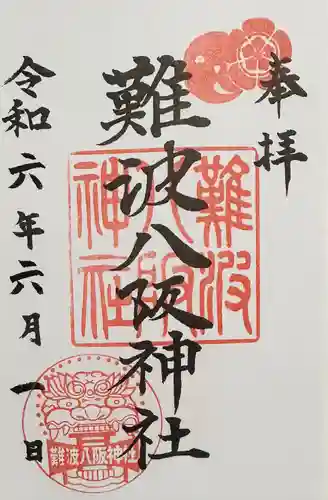 奉拝
難波八阪神社
令和六年六月一日
難波
八阪
神社
難波八阪神社